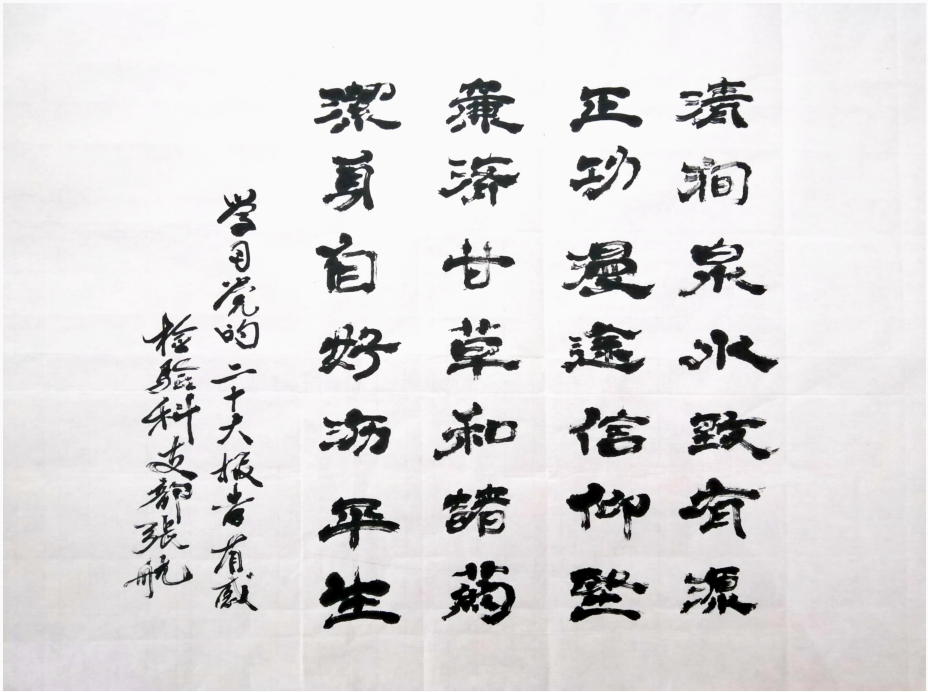 清泉水致有源
正漫途信仰堅
廉濟甘草和諸葯
潔身自好沥平生
学习党的二十大报告有感
检验科支部張航